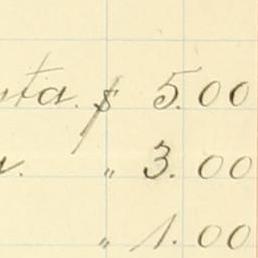 sta. $ 5.00
a. " 3.00
" 1.00